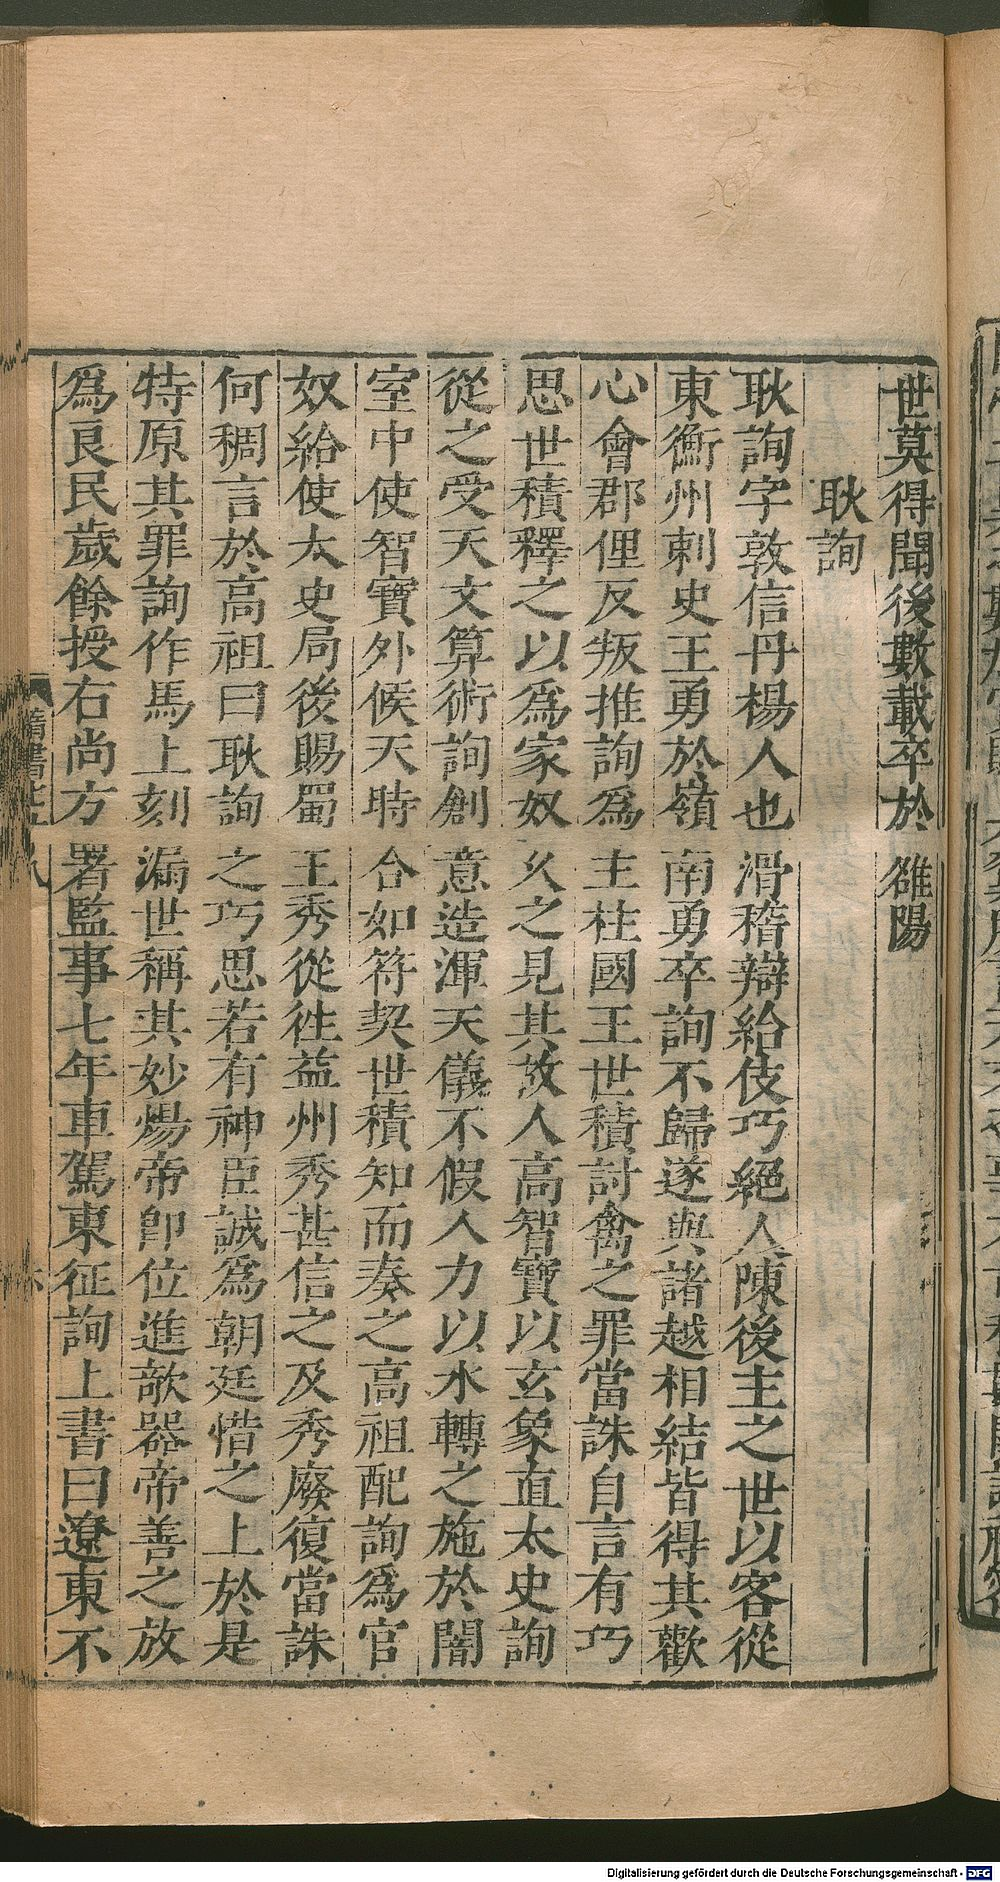 世莫得聞後數載卒於雒陽
耿詢
耿詢字敦信丹楊人也滑稽辯給伎巧絕人陳後主之世以客從
東衡州刺史王勇於嶺南勇卒詢不歸遂與諸越相結皆得其歡
心會郡俚反叛推詢爲主柱國王世積討禽之罪當誅自言有巧
思世積釋之以爲家奴久之見其故人高智寶以玄象直太史詢
從之受天文算術詢創意造渾天儀不假人力以水轉之施於闇
室中使智寶外候天時合如符契世積知而奏之高祖配詢爲官
奴給使太史局後賜蜀王秀從往益州秀甚信之及秀廢復當誅
何稠言於高祖曰耿詢之巧思若有神臣誠爲朝廷惜之上於是
特原其罪詢作馬上刻漏世稱其妙煬帝卽位進欹器帝善之放
爲良民歲餘授右尚方署監事七年車駕東征詢上書曰遼東不
隋書七十八
Digitalisierung gefördert durch die Deutsche Forschungsgemeinschaft - DFG